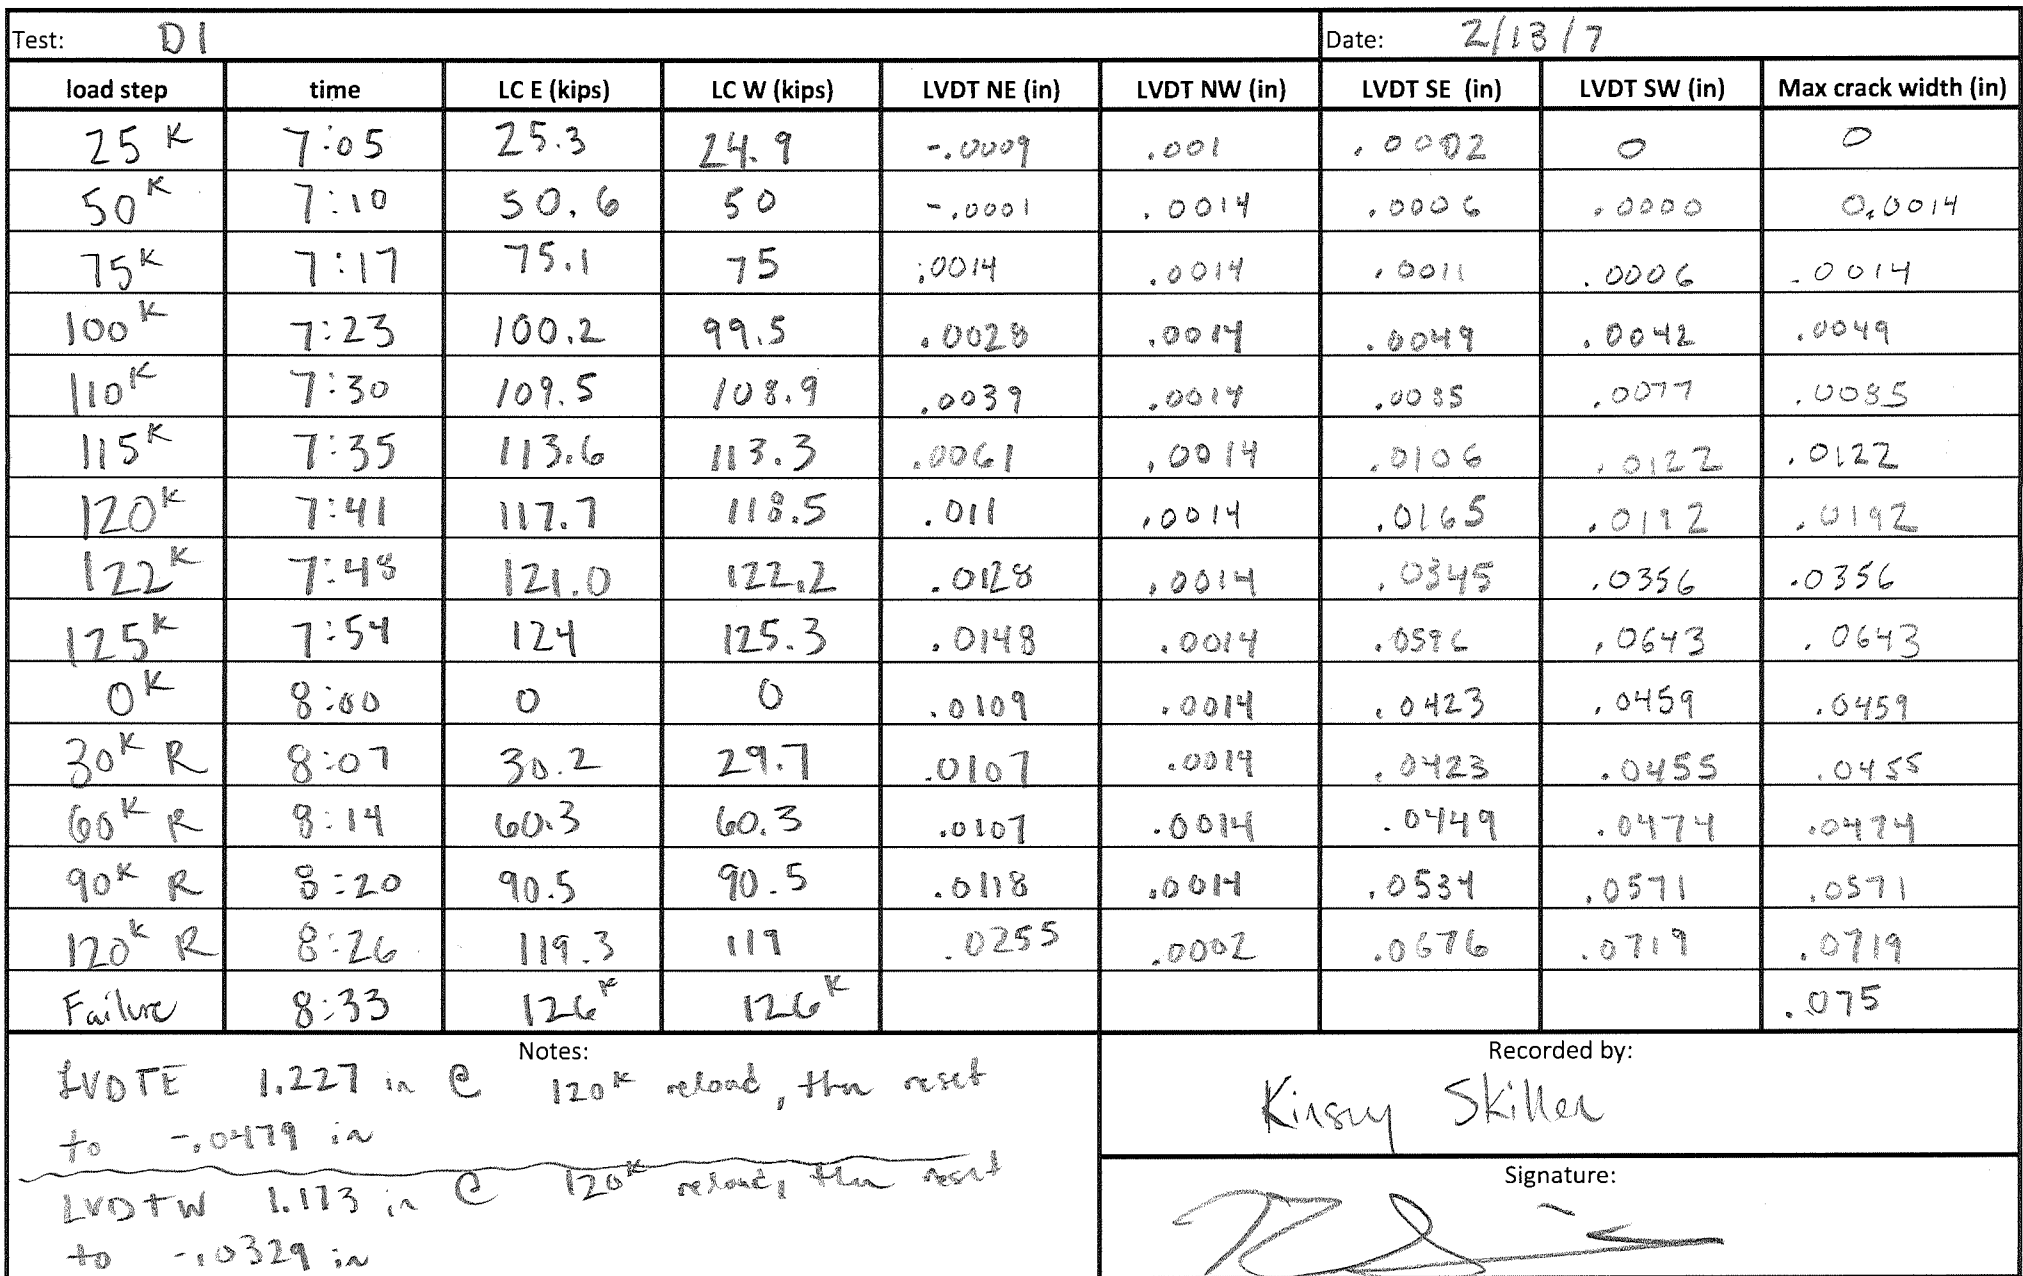 Test: D1 Date: 2/13/7
load step time LC E (kips) LC W (kips) LVDT NE (in) LVDT NW (in) LVDT SE (in) LVDT SW (in) Max crack width (in)
25 K 7:05 25.3 24.9 -.0009 .001 .0002 0 0
50 K 7:10 50.6 50 -.0001 .0014 .0006 .0000 0.0014
75 K 7:17 75.1 75 .0014 .0014 .0011 .0006 .0014
100 K 7:23 100.2 99.5 .0028 .0014 .0049 .0042 .0049
110 K 7:30 109.5 108.9 .0039 .0014 .0085 .0077 .0085
115 K 7:35 113.6 113.3 .0061 .0014 .0106 .0122 .0122
120 K 7:41 117.7 118.5 .011 .0014 .0165 .0192 .0192
122 K 7:48 121.0 122.2 .0128 .0014 .0345 .0356 .0356
125 K 7:54 124 125.3 .0148 .0014 .0596 .0643 .0643
0 K 8:00 0 0 .0109 .0014 .0423 .0459 .0459
30 K R 8:07 30.2 29.7 .0107 .0014 .0423 .0455 .0455
60 K R 8:14 60.3 60.3 .0107 .0014 .0449 .0474 .0474
90 K R 8:20 90.5 90.5 .0118 .0014 .0534 .0571 .0571
120 K R 8:26 119.3 119 .0255 .0002 .0676 .0719 .0719
Failure 8:33 126 K 126 K .075
Notes:
LVDTE 1.227 in @ 120 K reload, then reset
to -.0479 in
LVDTW 1.173 in @ 120 K reload, then reset
to -.0329 in
Recorded by:
Skiller
Signature: